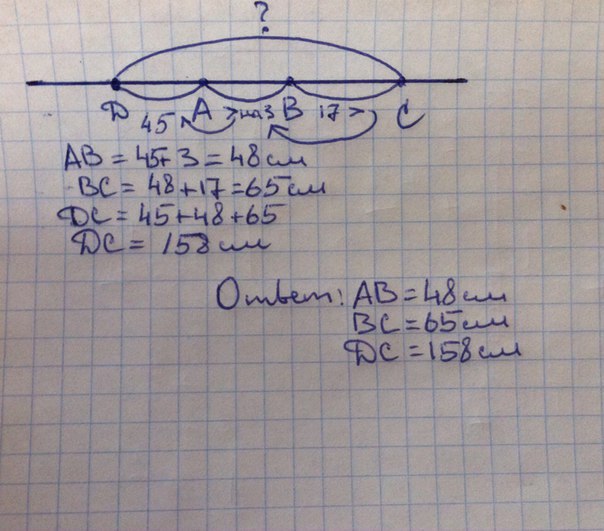 ?
D 45 A > на 3 B 17 > C
AB = 45 + 3 = 48 см
BC = 48 + 17 = 65 см
DC = 45 + 48 + 65
DC = 158 см
Ответ: AB = 48 см
BC = 65 см
DC = 158 см